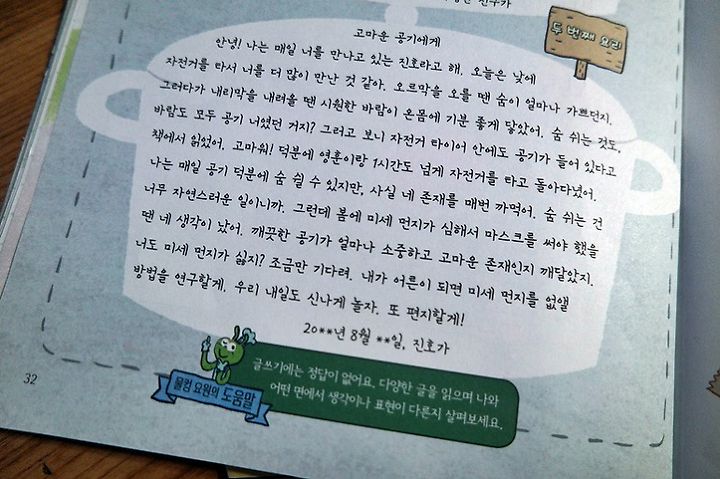 두 번째 요리
고마운 공기에게
안녕! 나는 매일 너를 만나고 있는 진호라고 해. 오늘은 낮에
자전거를 타서 너를 더 많이 만난 것 같아. 오르막을 오를 땐 숨이 얼마나 가쁘던지.
그러다가 내리막을 내려올 땐 시원한 바람이 온몸에 기분 좋게 닿았어. 숨 쉬는 것도,
바람도 모두 공기 너였던 거지? 그러고 보니 자전거 타이어 안에도 공기가 들어 있다고
책에서 읽었어. 고마워! 덕분에 영훈이랑 1시간도 넘게 자전거를 타고 돌아다녔어.
나는 매일 공기 덕분에 숨 쉴 수 있지만, 사실 네 존재를 매번 까먹어. 숨 쉬는 건
너무 자연스러운 일이니까. 그런데 봄에 미세 먼지가 심해서 마스크를 써야 했을
땐 네 생각이 났어. 깨끗한 공기가 얼마나 소중하고 고마운 존재인지 깨달았지.
너도 미세 먼지가 싫지? 조금만 기다려. 내가 어른이 되면 미세 먼지를 없앨
방법을 연구할게. 우리 내일도 신나게 놀자. 또 편지할게!
20**년 8월 **일, 진호가
글쓰기에는 정답이 없어요. 다양한 글을 읽으며 나와
어떤 면에서 생각이나 표현이 다른지 살펴보세요.
요원의 도움말
32